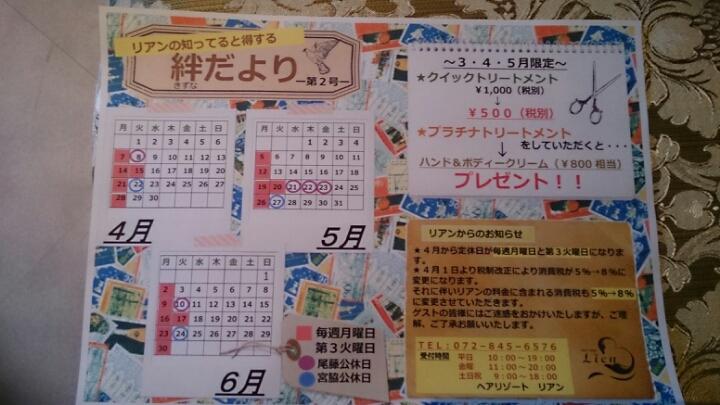 リアンの知ってると得する
絆だより
きずな
ー第２号ー
月 火 水 木 金 土 日
1 2 3 4 5 6
7 8 9 10 11 12 13
14 15 16 17 18 19 20
21 22 23 24 25 26 27
28 29 30
4月
月 火 水 木 金 土 日
1 2 3 4
5 6 7 8 9 10 11
12 13 14 15 16 17 18
19 20 21 22 23 24 25
26 27 28 29 30 31
5月
月 火 水 木 金 土 日
1
2 3 4 5 6 7 8
9 10 11 12 13 14 15
16 17 18 19 20 21 22
23 24 25 26 27 28 29
30
6月
毎週月曜日
第３火曜日
尾藤公休日
宮脇公休日
～３・４・５月限定～
★クイックトリートメント
￥1,000（税別）
↓
￥５００（税別）
★プラチナトリートメント
→をしていただくと・・・
ハンド＆ボディークリーム（￥800 相当）
プレゼント！！
リアンからのお知らせ
★４月から定休日が毎週月曜日と第３火曜日になります。
★４月１日より税制改正により消費税が５％→８％に
変更になります。
それに伴いリアンの料金に含まれる消費税も５％→８％
に変更させていただきます。
ゲストの皆様にはご迷惑をおかけいたしますが、ご理
解、ご了承お願いいたします。
TEL：072-845-6576
受付時間 平日 10：00～19：00
金曜 11：00～20：00
土日祝 9：00～18：00
ヘアリゾート リアン
Lien